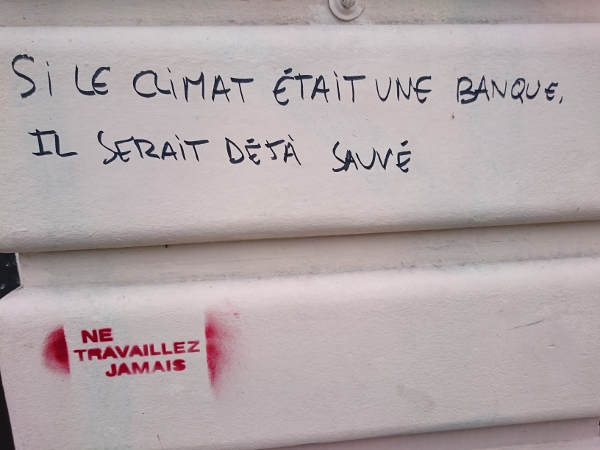 Si LE CLiMAT ÉTAiT UNE BANQUE,
IL SERAiT DÉJÀ SAUVÉ
NE
TRAVAILLEZ
JAMAIS